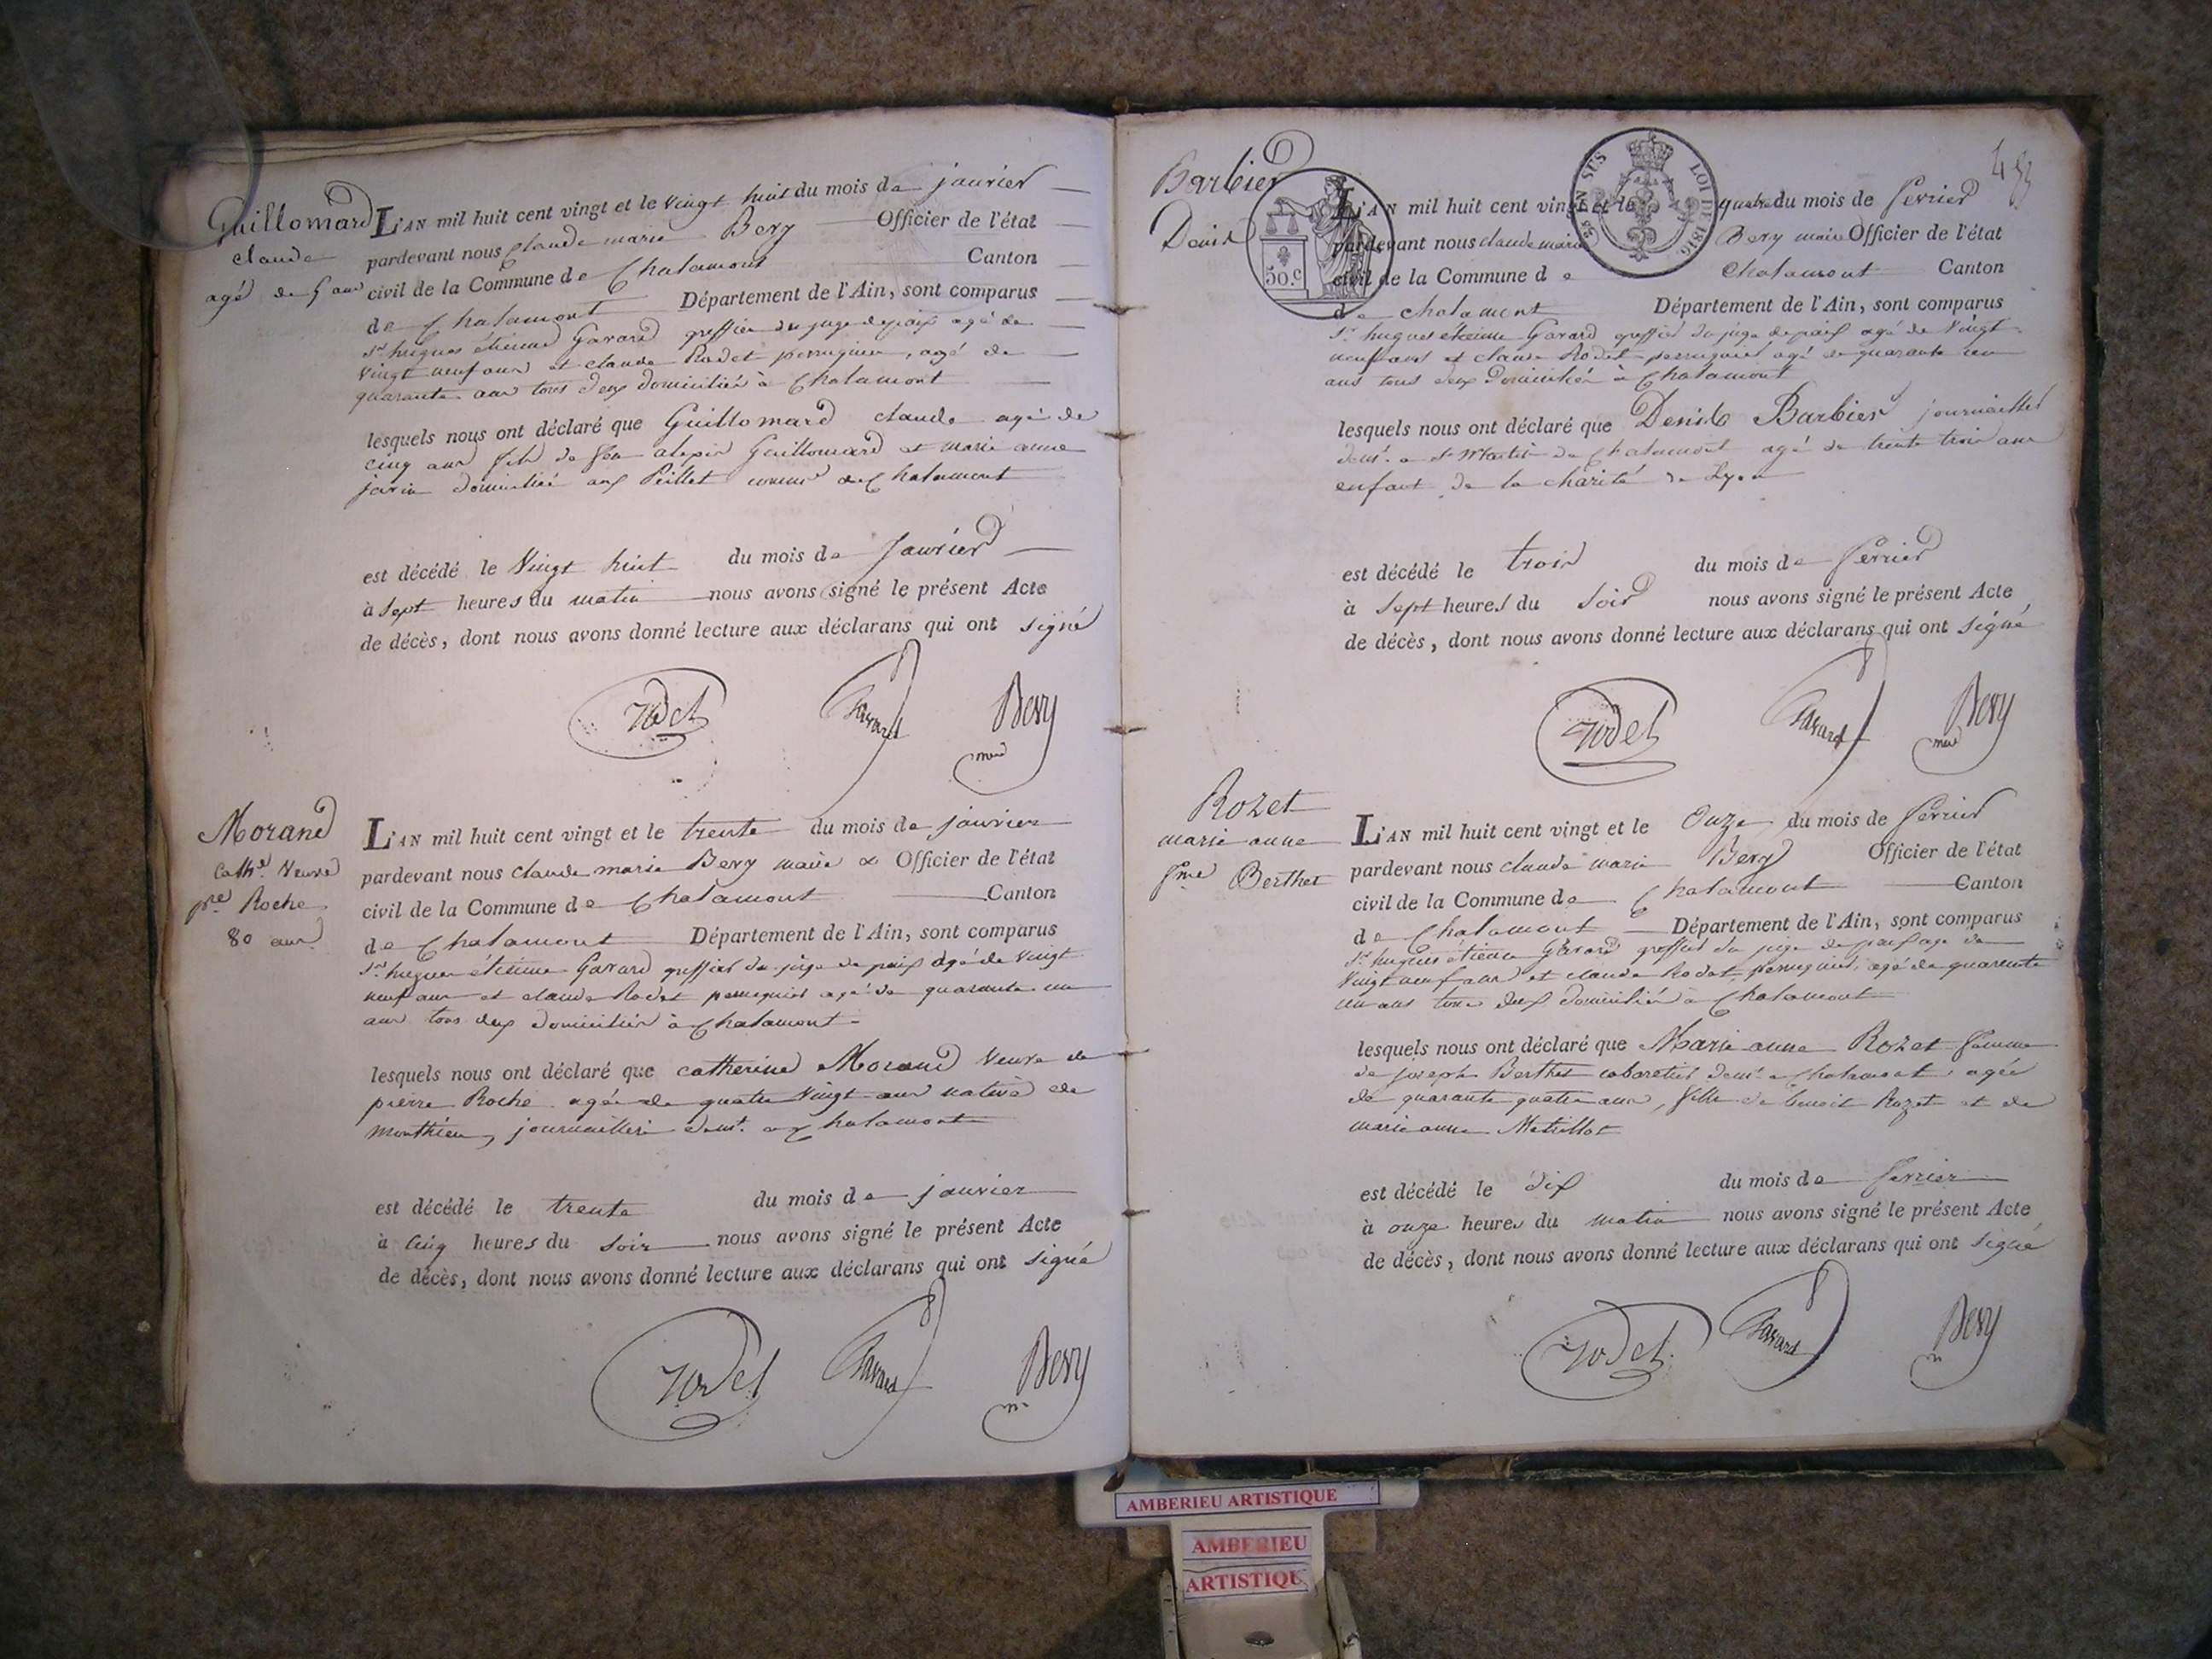 Guillomard
claude
agé de 5 ans
L'AN mil huit cent vingt et le vingt huit du mois de janvier
pardevant nous Claude marie Bevy Officier de l'état
civil de la Commune de Chalamont Canton
de Chalamont Département de l'Ain, sont comparus
Sr. hugues étienne Gavard greffier du juge de paix agé de
vingt neuf ans et claude Rodet perruquier, agé de
quarante ans tous deux domiciliés à Chalamont
lesquels nous ont déclaré que Guillomard claude agé de
cinq ans fils de feu alexis Guillomard et marie anne
jarin domiciliée aux Peillet commune de Chalamont
est décédé le vingt huit du mois de janvier
à sept heures du matin nous avons signé le présent Acte
de décès, dont nous avons donné lecture aux déclarans qui ont signé
Rodet Gavard Bevy
maire
Morand
Cathe. veuve
pre. Roche
80 ans
L'AN mil huit cent vingt et le trente du mois de janvier
pardevant nous claude marie Bevy maire Officier de l'état
civil de la Commune de Chalamont Canton
de Chalamont Département de l'Ain, sont comparus
Sr. hugues étienne Gavard greffier du juge de paix agé de vingt
neuf ans et claude Rodet perruquier agé de quarante un
ans tous deux domiciliés à Chalamont
lesquels nous ont déclaré que catherine Morand veuve de
pierre Roche agée de quatre vingt ans native de
Monthieu, journalliere demt. a Chalamont
est décédé le trente du mois de janvier
à cinq heures du soir nous avons signé le présent Acte
de décès, dont nous avons donné lecture aux déclarans qui ont signé
Rodet Gavard Bevy
m
Barbier
Denis
50.c
35 EN SUS LOI DE 1816
L'AN mil huit cent vingt et le quatre du mois de fevrier
pardevant nous claude marie Bevy maire Officier de l'état
civil de la Commune de Chalamont Canton
de chalamont Département de l'Ain, sont comparus
Sr. hugues étienne Gavard greffier du juge de paix agé de vingt
neuf ans et claude Rodet perruquier agé de quarante un
ans tous deux domiciliés à Chalamont
lesquels nous ont déclaré que Denis Barbier journallier
demt. a St Martin de Chalamont agé de trente trois ans
enfant de la charité de Lyon
est décédé le trois du mois de fevrier
à sept heures du soir nous avons signé le présent Acte
de décès, dont nous avons donné lecture aux déclarans qui ont signé
Rodet Gavard Bevy
maire
Rozet
marie anne
fme Berthet
L'AN mil huit cent vingt et le onze du mois de fevrier
pardevant nous claude marie Bevy Officier de l'état
civil de la Commune de Chalamont Canton
de Chalamont Département de l'Ain, sont comparus
Sr. hugues étienne Gavard greffier du juge de paix agé de
vingt neuf ans et claude Rodet perruquier, agé de quarante
un ans tous deux domiciliés à Chalamont
lesquels nous ont déclaré que Marie anne Rozet femme
de joseph Berthet cabaretier demt. a Chalamont, agée
de quarante quatre ans, fille de benoit Rozet et de
marie anne
est décédé le dix du mois de fevrier
à onze heures du matin nous avons signé le présent Acte
de décès, dont nous avons donné lecture aux déclarans qui ont signé
Rodet Gavard Bevy
m
AMBERIEU ARTISTIQUE
AMBERIEU
ARTISTIQUE